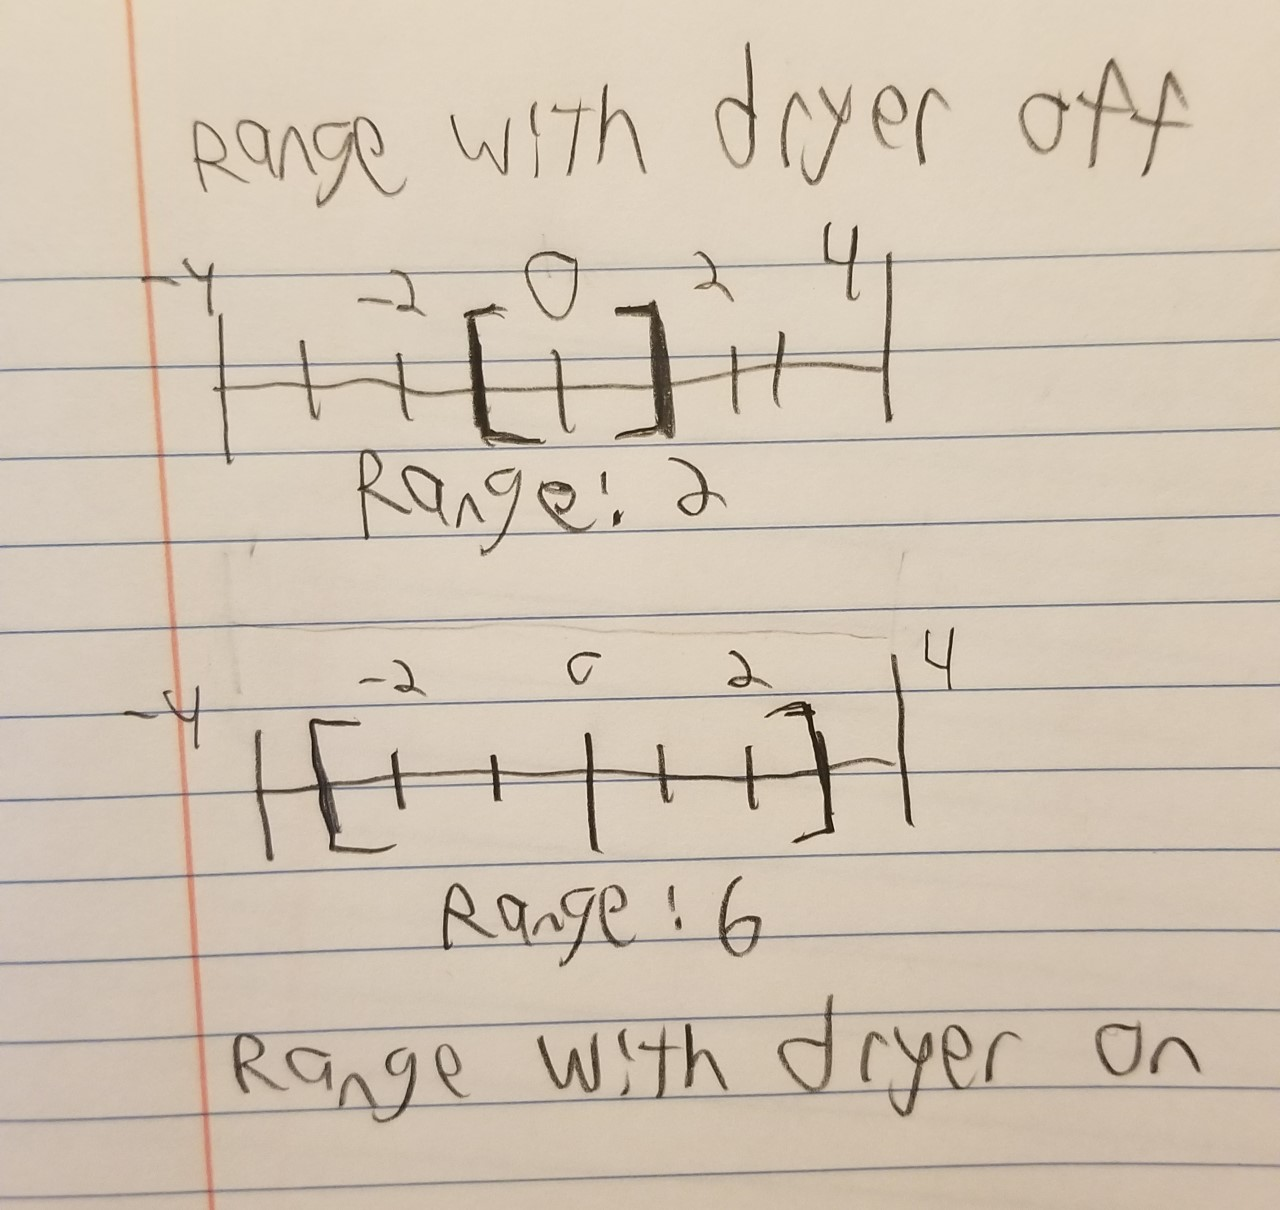 Range with dryer off
-4 -2 0 2 4
Range: 2
-4 -2 0 2 4
Range: 6
Range with dryer on